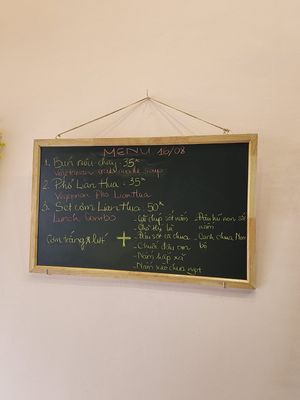 MENU 16/08
1. Bún riêu chay: 35K
Vegetarian crab noodle soup
2. Phở Lan Hua: 35K
Vegetarian Pho Lan Hua
3. Set cơm Lian Hua: 50K
Lunch combo
Cơm trắng + lứt
+
- Gỏi bắp sốt nấm
- Chả thì là
- Đậu sốt cà chua
- Chuối đậu om
- Nấm hấp xả
- Nấm xào chua ngọt
- Đậu hũ non sốt nấm
- Canh chua